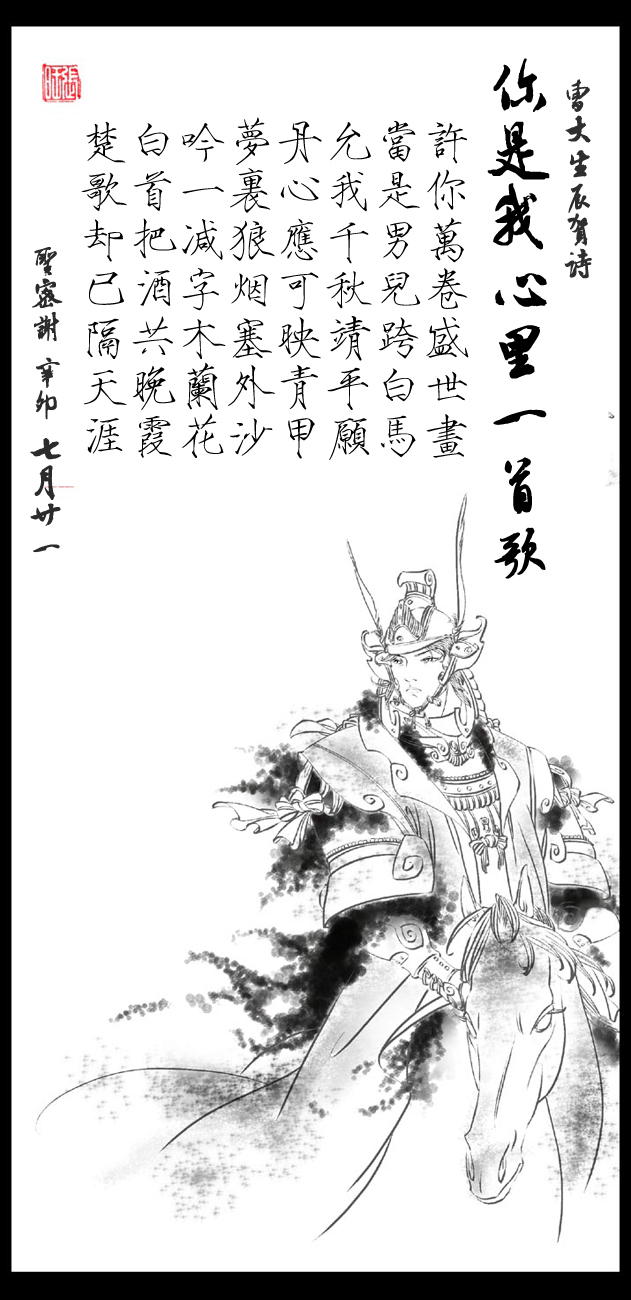 曹大生辰賀詩
你是我心里一首歌
許你萬卷盛世畫
當是男兒跨白馬
允我千秋靖平願
丹心應可映青甲
夢裏狼烟塞外沙
吟一減字木蘭花
白首把酒共晚霞
楚歌却已隔天涯
聖蜜謝 辛卯 七月廿一